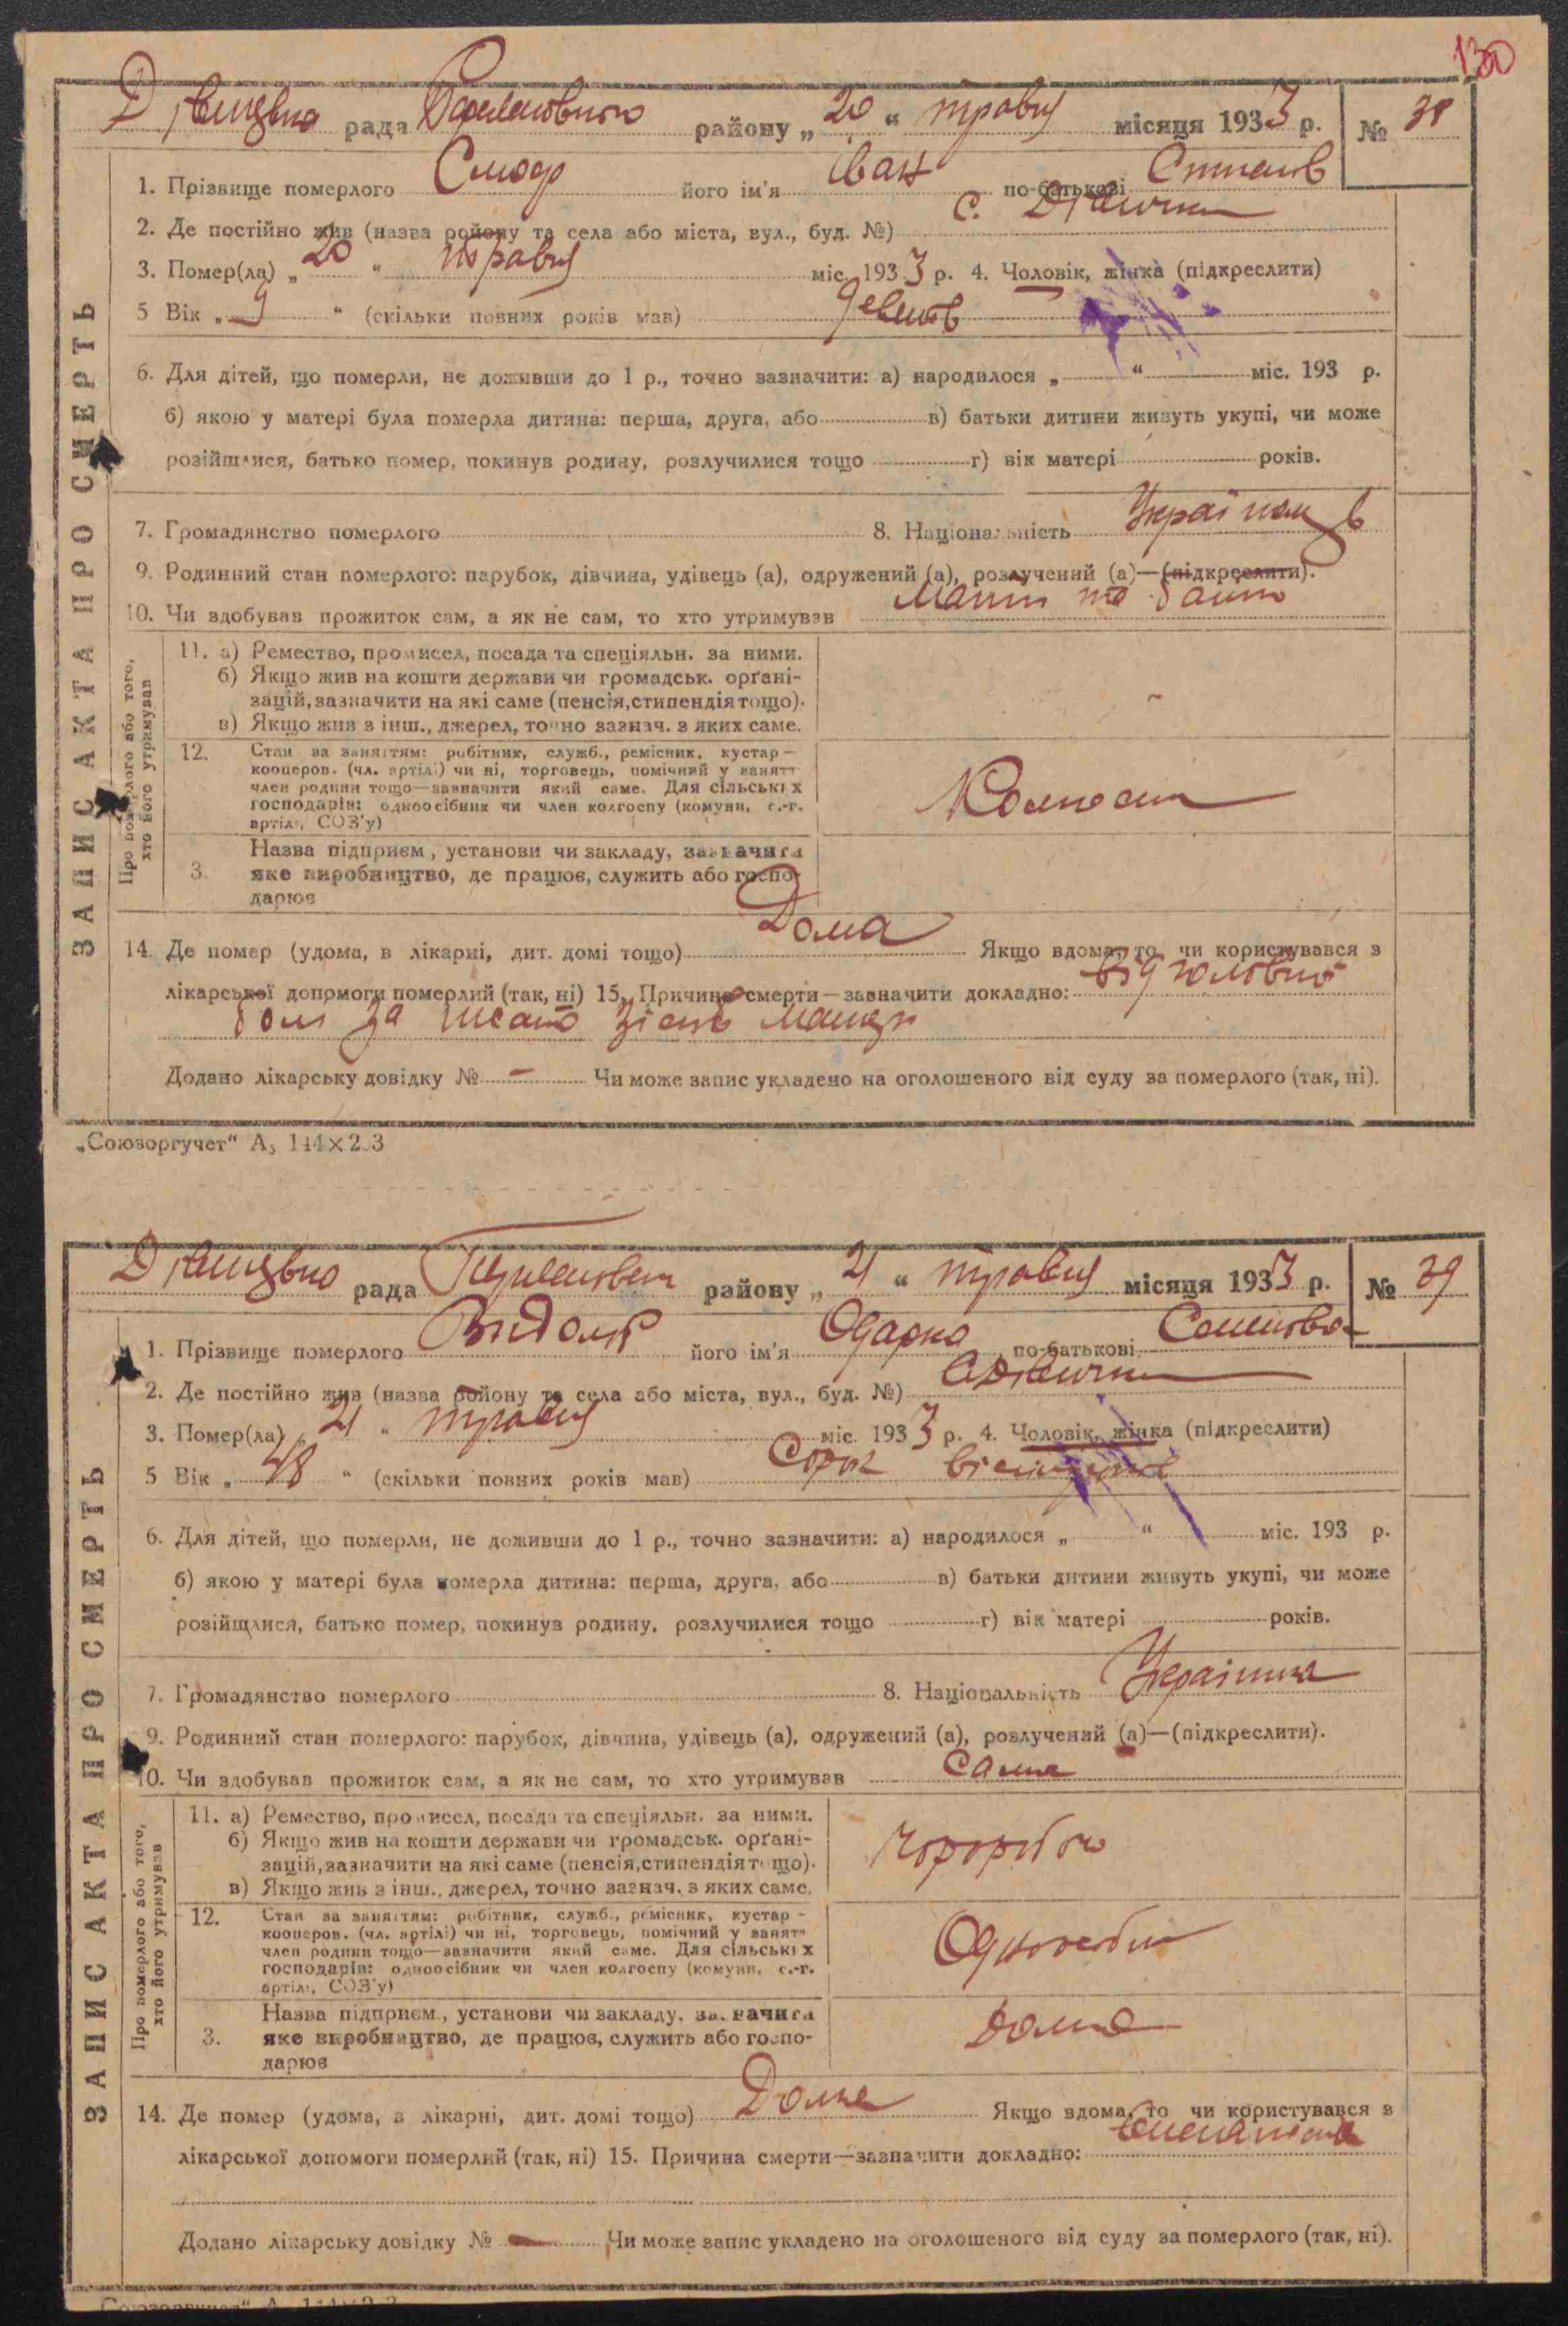 130
рада району „ 20 “ травня місяця 1933 р. № 38
1. Прізвище померлого його ім'я Іван по-батькові
2. Де постійно жив (назва району та села або міста, вул., буд. №) с. Дівички
3. Помер(ла) „ 20 “ травня міс. 193 3 р. 4. Чоловік, жінка (підкреслити)
5 Вік „ 9 “ (скільки повних років мав) девять
6. Для дітей, що померли, не доживши до 1 р., точно зазначити: а) народилося „ “ міс. 193 р.
б) якою у матері була померла дитина: перша, друга, або в) батьки дитини живуть укупі, чи може
розійшлися, батько помер, покинув родину, розлучилися тощо г) вік матері років.
7. Громадянство померлого 8. Національність Українець
9. Родинний стан померлого: парубок, дівчина, удівець (а), одружений (а), розлучений (а)—(підкреслити).
10. Чи здобував прожиток сам, а як не сам, то хто утримував Мати та батько
ЗАПИС АКТА ПРО СМЕРТЬ
Про померлого або того,
хто його утримував
11. а) Ремество, промисел, посада та спеціяльн. за ними.
б) Якщо жив на кошти держави чи громадськ. орґані-
зацій, зазначити на які саме (пенсія, стипендія тощо).
в) Якщо жив з інш., джерел, точно зазнач. з яких саме.
12. Стан за заняттям: робітник, служб., ремісник, кустар —
кооперов. (чл. артілі) чи ні, торговець, помічний у занятт
член родини тощо—зазначити який саме. Для сільських
господарів: одноосібник чи член колгоспу (комуни, с.-г.
артілі, СОЗ'у)
3. Назва підприєм., установи чи закладу, зазначити
яке виробництво, де працює, служить або госпо-
дарює
14. Де помер (удома, в лікарні, дит. домі тощо) Дома Якщо вдома, то чи користувався з
лікарської допомоги померлий (так, ні) 15. Причина смерти—зазначити докладно: від головної
Додано лікарську довідку № — Чи може запис укладено на оголошеного від суду за померлого (так, ні).
„Союзоргучет“ А₅ 144×203
рада району „ 21 “ травня місяця 1933 р. № 39
1. Прізвище померлого його ім'я Одарка по-батькові Семенова
2. Де постійно жив (назва району та села або міста, вул., буд. №) с Дівички
3. Помер(ла) „ 21 “ травня міс. 193 3 р. 4. Чоловік, жінка (підкреслити)
5 Вік „ 48 “ (скільки повних років мав) Сорок
6. Для дітей, що померли, не доживши до 1 р., точно зазначити: а) народилося „ “ міс. 193 р.
б) якою у матері була померла дитина: перша, друга, або в) батьки дитини живуть укупі, чи може
розійшлися, батько помер, покинув родину, розлучилися тощо г) вік матері років.
7. Громадянство померлого 8. Національність Українка
9. Родинний стан померлого: парубок, дівчина, удівець (а), одружений (а), розлучений (а)—(підкреслити).
10. Чи здобував прожиток сам, а як не сам, то хто утримував Сама
ЗАПИС АКТА ПРО СМЕРТЬ
Про померлого або того,
хто його утримував
11. а) Ремество, промисел, посада та спеціяльн. за ними.
б) Якщо жив на кошти держави чи громадськ. орґані-
зацій, зазначити на які саме (пенсія, стипендія тощо).
в) Якщо жив з інш., джерел, точно зазнач. з яких саме.
12. Стан за заняттям: робітник, служб., ремісник, кустар —
кооперов. (чл. артілі) чи ні, торговець, помічний у занятт
член родини тощо—зазначити який саме. Для сільських
господарів: одноосібник чи член колгоспу (комуни, с.-г.
артілі, СОЗ'у)
Одноосібник
3. Назва підприєм., установи чи закладу, зазначити
яке виробництво, де працює, служить або госпо-
дарює
Дома
14. Де помер (удома, в лікарні, дит. домі тощо) Дома Якщо вдома, то чи користувався з
лікарської допомоги померлий (так, ні) 15. Причина смерти—зазначити докладно:
Додано лікарську довідку № — Чи може запис укладено на оголошеного від суду за померлого (так, ні).